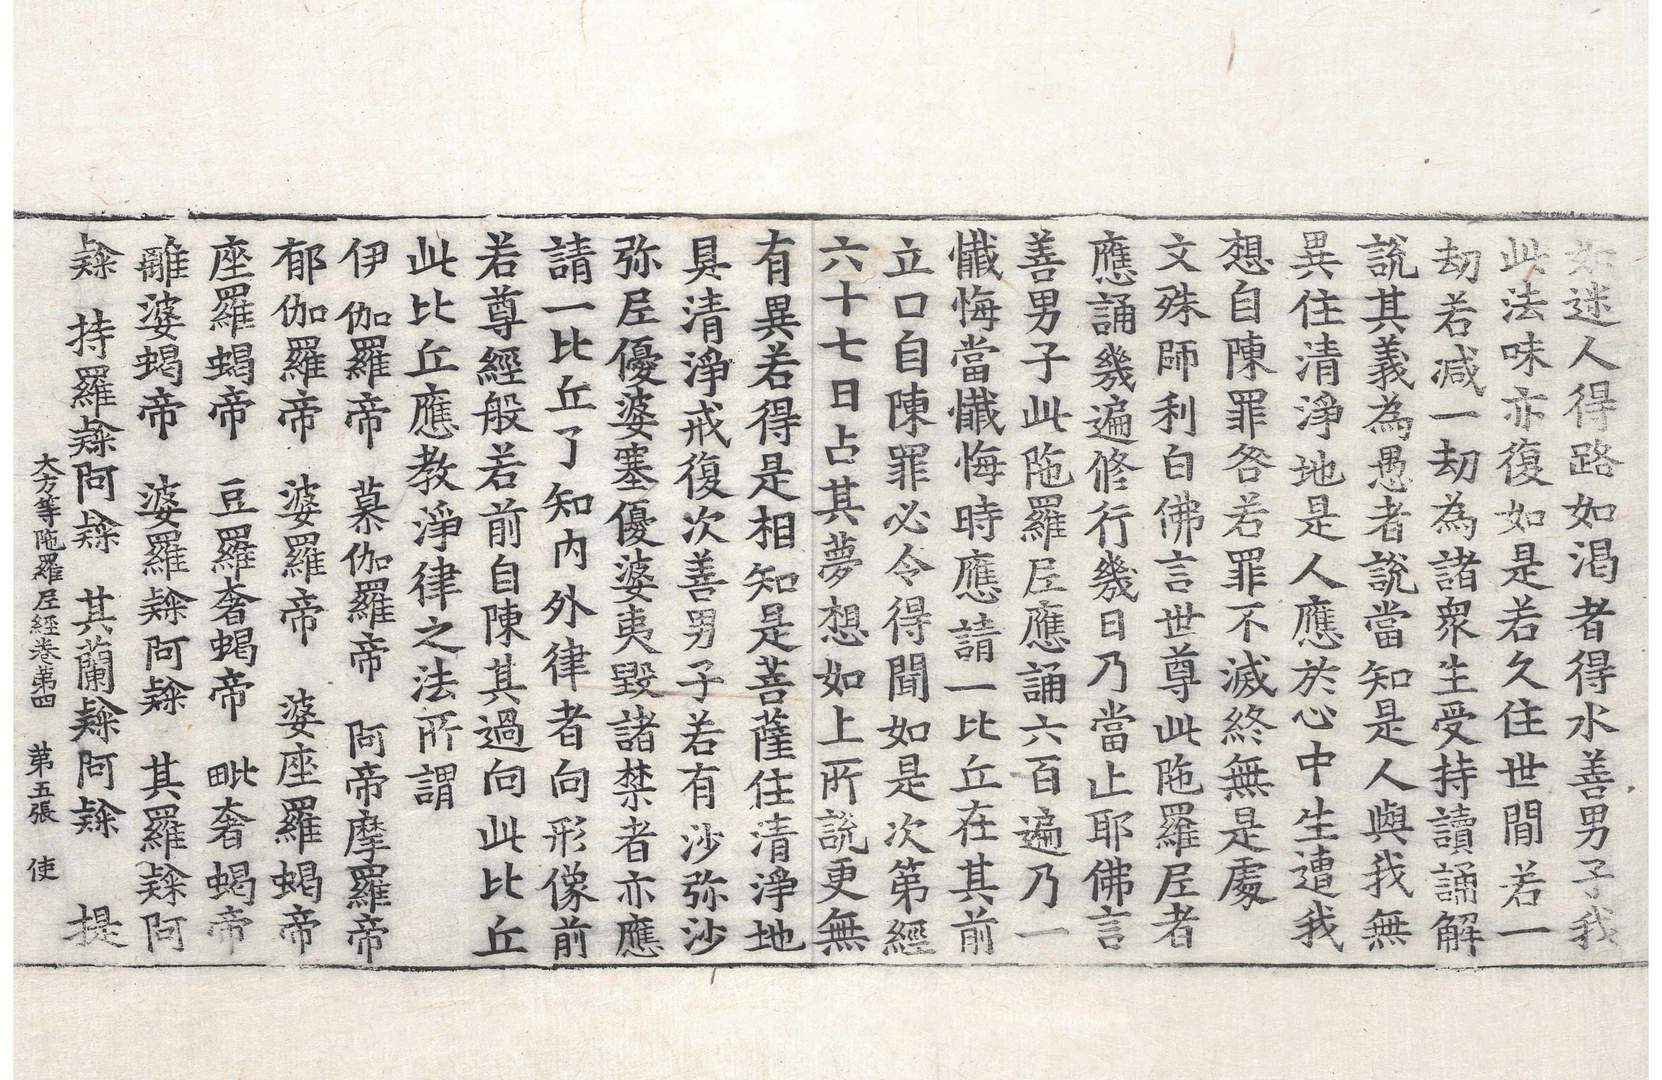 如迷人得路如渴者得水善男子我
此法味亦復如是若久住世間若一
劫若減一劫為諸衆生受持讀誦解
說其義為愚者說當知是人與我無
異住清淨地是人應於心中生遭我
想自陳罪咎若罪不滅終無是處
文殊師利白佛言世尊此陁羅𡰱者
應誦幾遍修行幾日乃當止耶佛言
善男子此陁羅𡰱應誦六百遍乃一
懺悔當懺悔時應請一比丘在其前
立口自陳罪必令得聞如是次第經
六十七日占其夢想如上所說更無
有異若得是相知是菩薩住清淨地
具清淨戒復次善男子若有沙弥沙
弥𡰱優婆塞優婆夷毀諸禁者亦應
請一比丘了知内外律者向形像前
若尊經般若前自陳其過向此比丘
此比丘應教淨律之法所謂
伊伽羅帝 慕伽羅帝 阿帝摩羅帝
郁伽羅帝 婆羅帝 婆座羅蝎帝
座羅蝎帝 豆羅奢蝎帝 毗奢蝎帝
離婆蝎帝 婆羅隸阿隸 其羅隸阿
隸 持羅隸阿隸 其蘭隸阿隸 提
大方等陁羅𡰱經卷第四 第五張 使